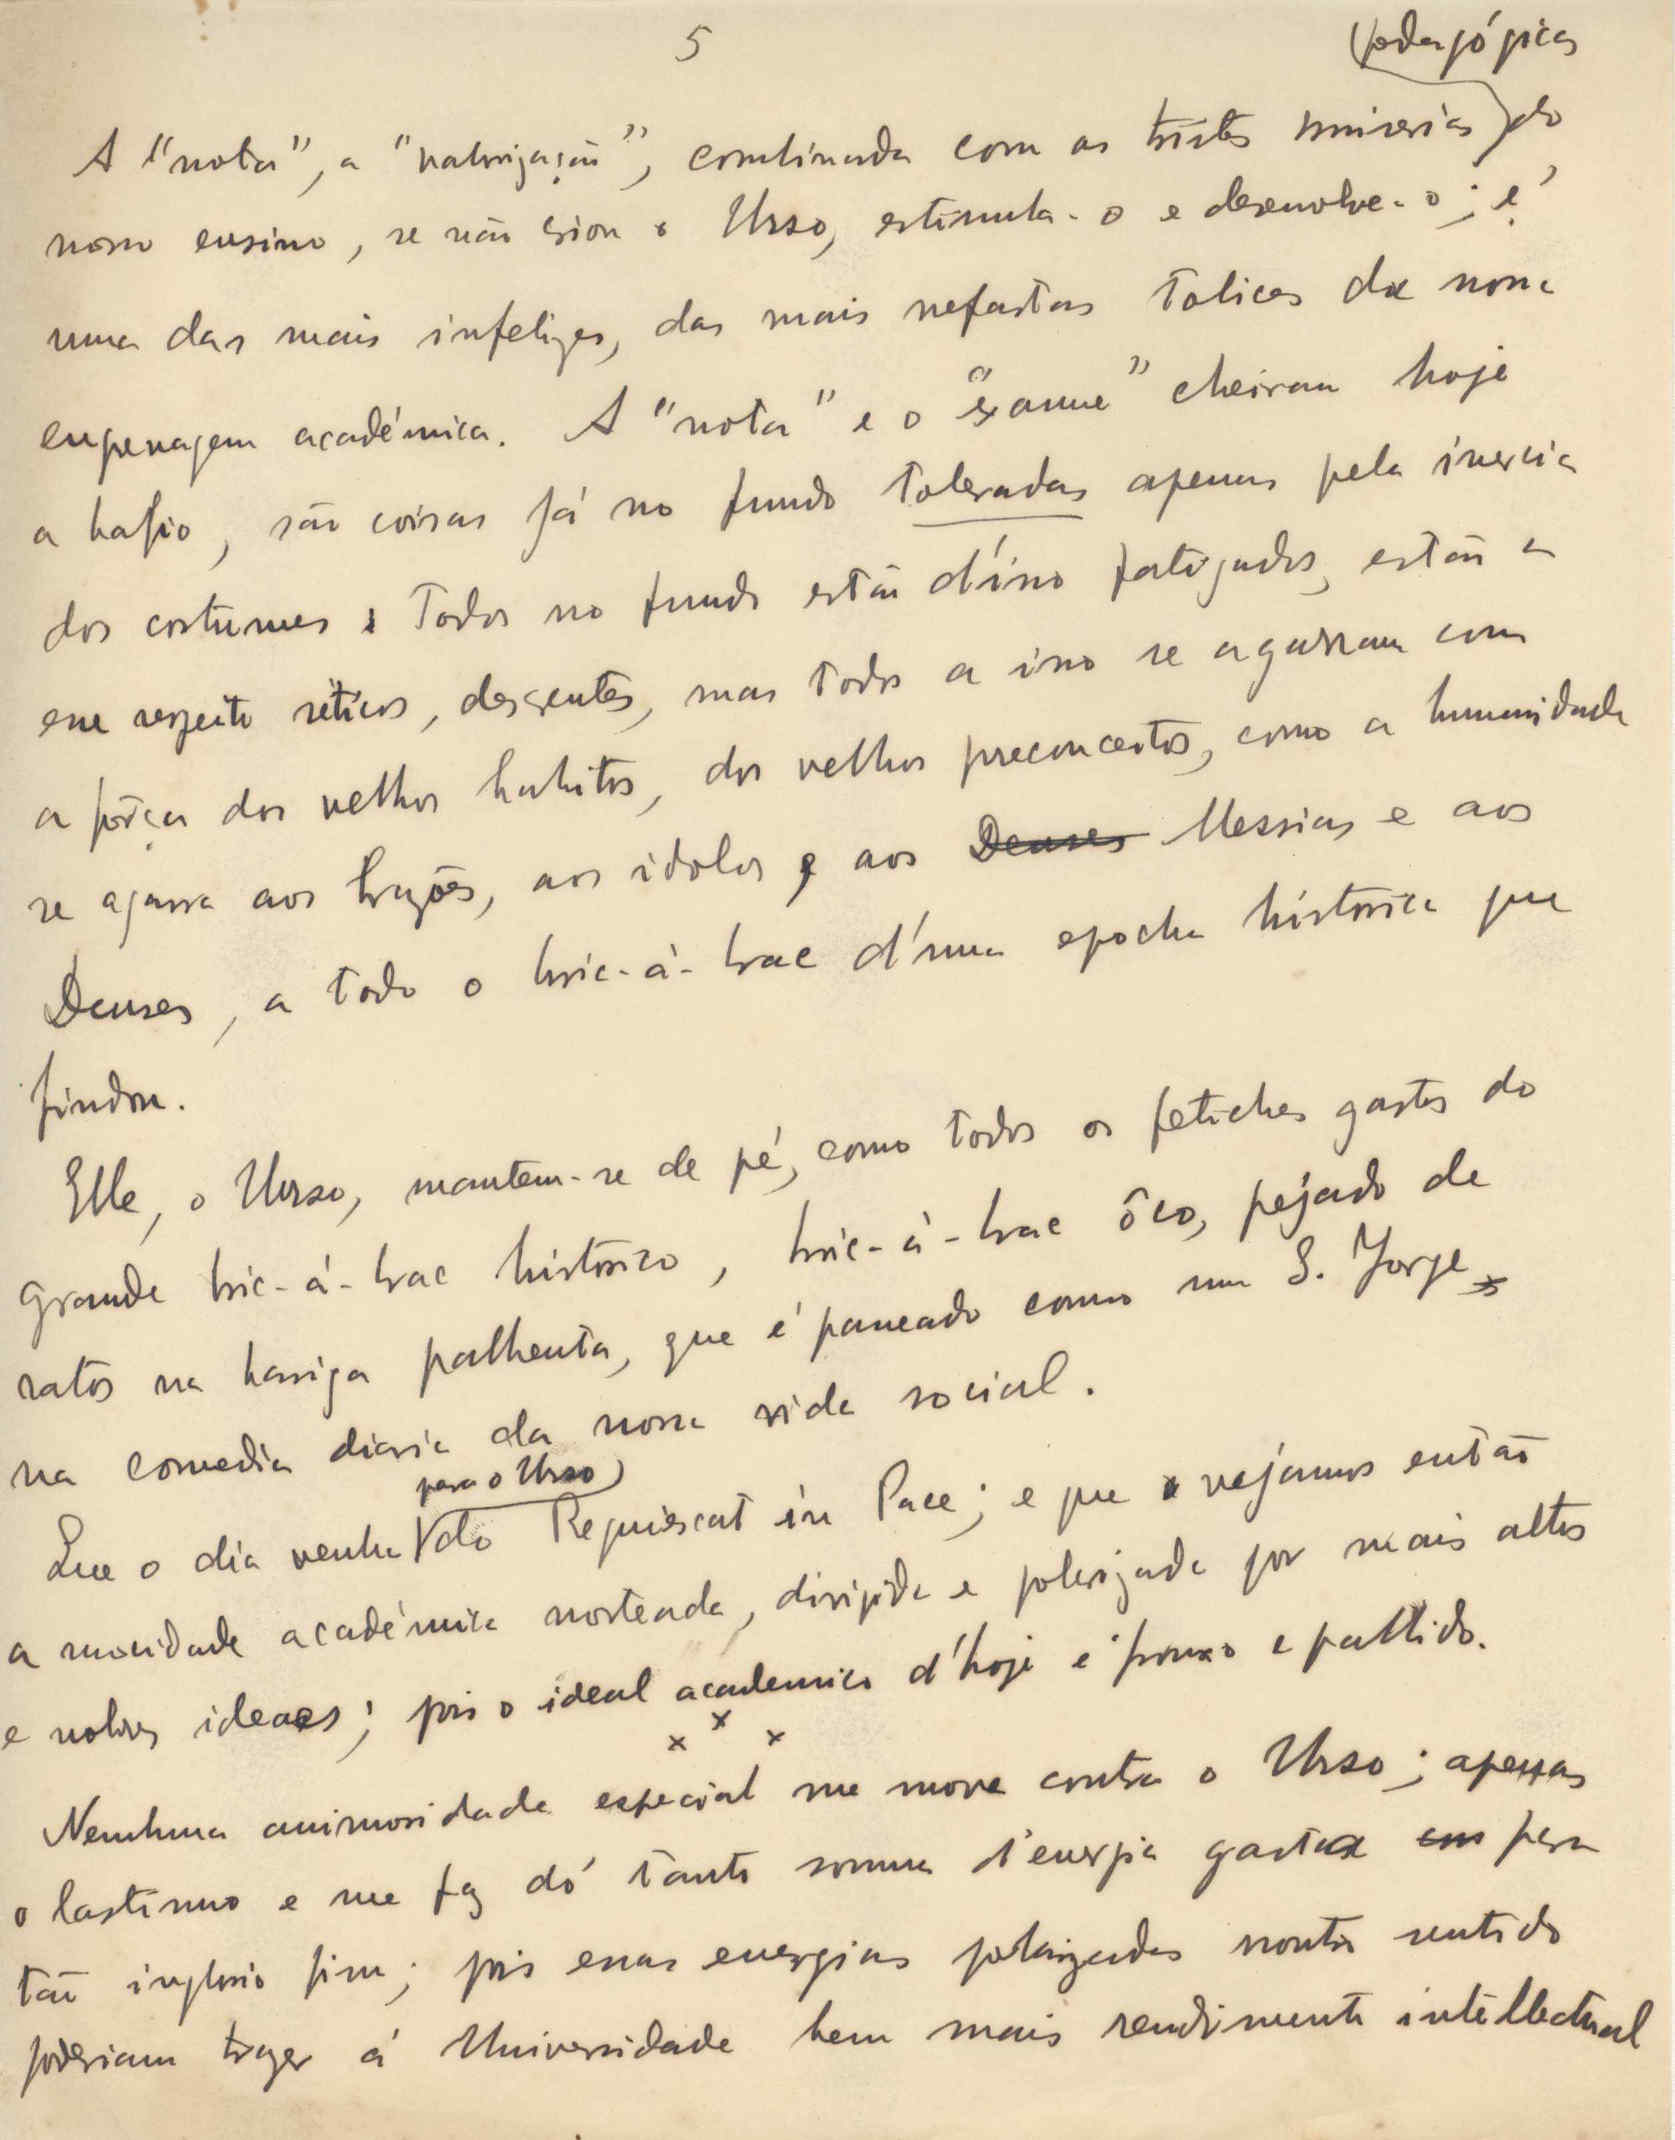 5
pedagógicas
A "nota", a "valorização", combinada com as tristes miserias do
nosso ensino, se não criou o Urso, estimula-o e desenvolve-o; é
uma das mais infelizes, das mais nefastas tolices da nossa
engrenagem académica. A "nota" e o "exame" cheiram hoje
a bafio, são coisas já no fundo toleradas apenas pela inercia
dos costumes. Todos no fundo estão d'isso fatigados, estão a
esse respeito séticos, descrentes, mas todos a isso se agarram com
a fôrça dos velhos habitos, dos velhos preconceitos, como a humanidade
se agarra aos brazões, aos idolos, aos Deuses Messias e aos
Deuses, a todo o bric-à-brac d'uma epocha histórica que
findou.
Elle, o Urso, mantem-se de pé, como todos os fetiches gastos do
grande bric-à-brac histórico, bric-à-brac ôco, pejado de
ratos na barriga palhenta, que é passeado como um S. Jorge
na comedia diaria da nossa vida social.
para o Urso
Que o dia venha do Requiescat in Pace; e que vejamos então
a mocidade académica norteada, dirigida e polarizada por mais altos
e nobres ideaes; pois o ideal academico d'hoje é frouxo e pallido.
x x x
Nenhuma animosidade especial me move contra o Urso; apenas
o lastimo e me faz dó tanta somma d'energia gasta em para
tão inglorio fim; pois essas energias polarizadas noutro sentido
poderiam trazer á Universidade bem mais rendimento intellectual